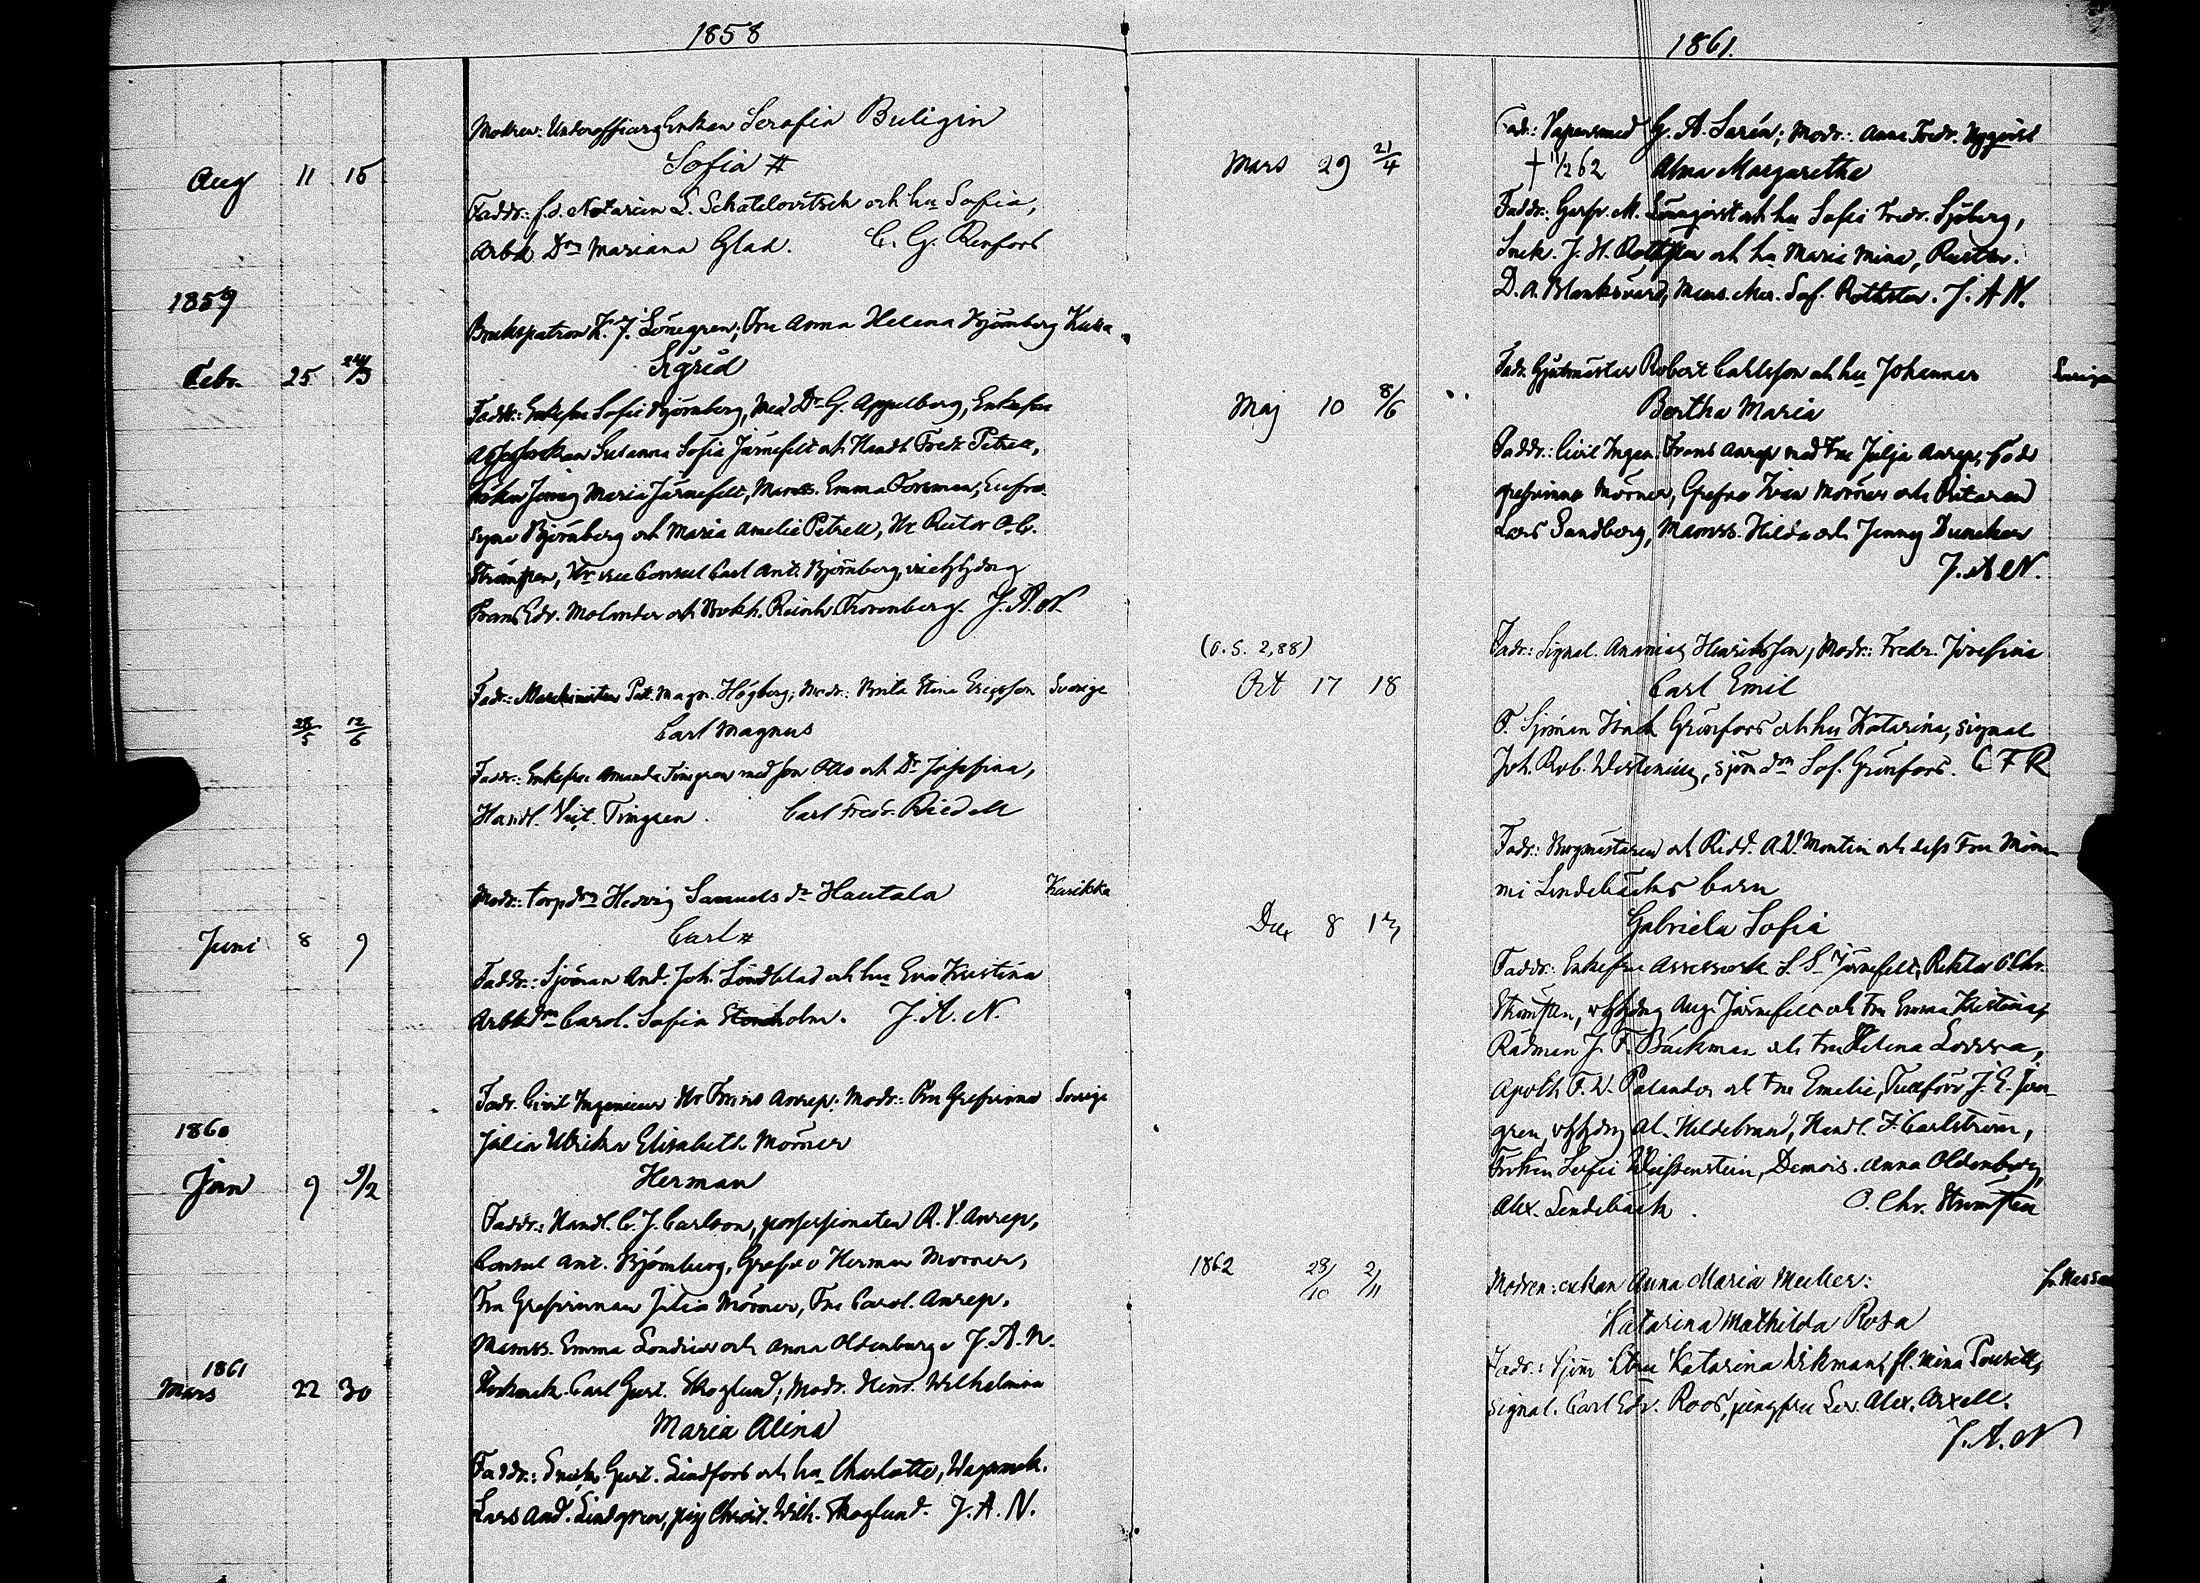 1858
Modren: Underofficers Enkan Serafia Buligin
Aug 11 15 Sofia #
Faddr: f.d. Notarien S. Schatelovitsch och hu Sofia,
Arbk Drn Mariana Glad. C. G. Renfors
1859
Brukspatron K. J. Lönegren; Fru Anna Helena Björnberg
Febr. 25 24/3 Sigrid
Faddr: Enkefru Sofie Björnberg, med Dr G. Appelberg, Enkefru
Susanna Sofia Järnefelt och Handl Fredr Petrell,
Fröken Jenny Maria Järnefelt, Mamss. Emma Forsman, Eufro-
syne Björnberg och Maria Amelie Petrell, Hr Rector O. C.
Strömsten, Hr vice Consul Carl Ant. Björnberg,
Frans Edv. Molander och Bokh. Reinh Thorenberg. J. A. N.
Fadr: Maskinisten Pet. Magn. Högberg; Modr: Brita Stina Ericsson Sverige
28/5 12/6 Carl Magnus
Faddr: Enkefru Amanda Timgren med son Otto och Dr Josefina,
Handl. Vict. Timgren. Carl Fredr. Riedell
Modr: torp drn Hedvig Samuels dr Hautala Karikka
Juni 8 9 Carl #
Faddr: Sjöman And. Joh. Söndblad och hu Eva Kristina
Arbk drn Carol. Sofia Stenholm. J. A. N.
Fadr. Civil Ingenieur Hr Frans Anrep; Modr: Fru Grefvinna Sverige
1860
Julia Ulrika Elisabeth Mörner
Jan 9 9/2 Herman
Faddr: Handl. C. J. Carlson, possessionaten R. V. Anrep,
Consul Ant. Björnberg, Grefve Herman Mörner,
Fru Grefvinnan Julia Mörner, Fru Carol. Anrep,
Mamss. Emma och Anna Oldenburg. J. A. N.
1861
Mars 22 30 Carl Gust. Skoglund; Modr. Hend. Wilhelmina
Maria Alina
Faddr: Snick. Gust. Lindfors och hu Charlotte, Wagnmak.
Lars And. Lindgren, pig Christ. Wilh. Skoglund. J. A. N.
1861.
Fadr: Vapensmed G. A. Sarén; Modr: Anna Fredr. Nyqvist
Mars 29 21/4 † 11/2 62 Alma Margaretha
Faddr: Garfv. M. Lönnqvist och hu Sofie Fredr. Sjöberg,
Snick. J. H. Rothsten och hu Maria Mina,
D. A. Blanksvärd, Mams. Sof. Rothsten. J. A. N.
Fadr Gjutmästar Robert Carlsson och hu Johanna Sverige
Maj 10 8/6 Bertha Maria
Faddr: Civil Ingen. Frans Anrep med Fru Julja Anrep, född
grefvinna Mörner, Grefve Ivan Mörner och Ritaren
Lars Sandberg, Mamss. Hilda och Jenny Duncker
J. A. N.
(O.S. 2,88)
Fadr: Signal. Ananias Henriksson; Modr: Fredr. Josefina
Oct 17 18 Carl Emil
F. Sjöman Isack Grönfors och hu Katarina, signal
Joh. Rob. Westenius, sjöm drn Sof. Grönfors. C F R
Fadr: Borgmästaren och Ridd. A. W. Montin och dess Fru Mim-
mi Lindebäcks barn
Dec 8 13 Gabriela Sofia
Faddr: Enkefru Assessorsk S. S. Järnefelt, Rektor O Chr.
Strömsten, Aug. Järnefelt och fru Emma Kristina,
Rådman J. F. Bäckman och fru Helena Lovisa,
Apoth. F. W. Palander och fru Emelie, Tullförv J. E. Jan-
gren, Al. Hildebrand, Handl. F. Carlström,
Fröken Sofie Weissenstein, Demois. Anna Oldenburg,
Alex. Lindebäck. O. Chr. Strömsten
1862 28/10 2/11 Modren: enkan Anna Maria Mecker:
Katarina Mathilda Rosa
Fadr: Sjöm Katarina Wikman, fl. Mina Pourell,
signal. Carl Edv. Roos, jungfru Lov. Alex. Axell.
J. A. N